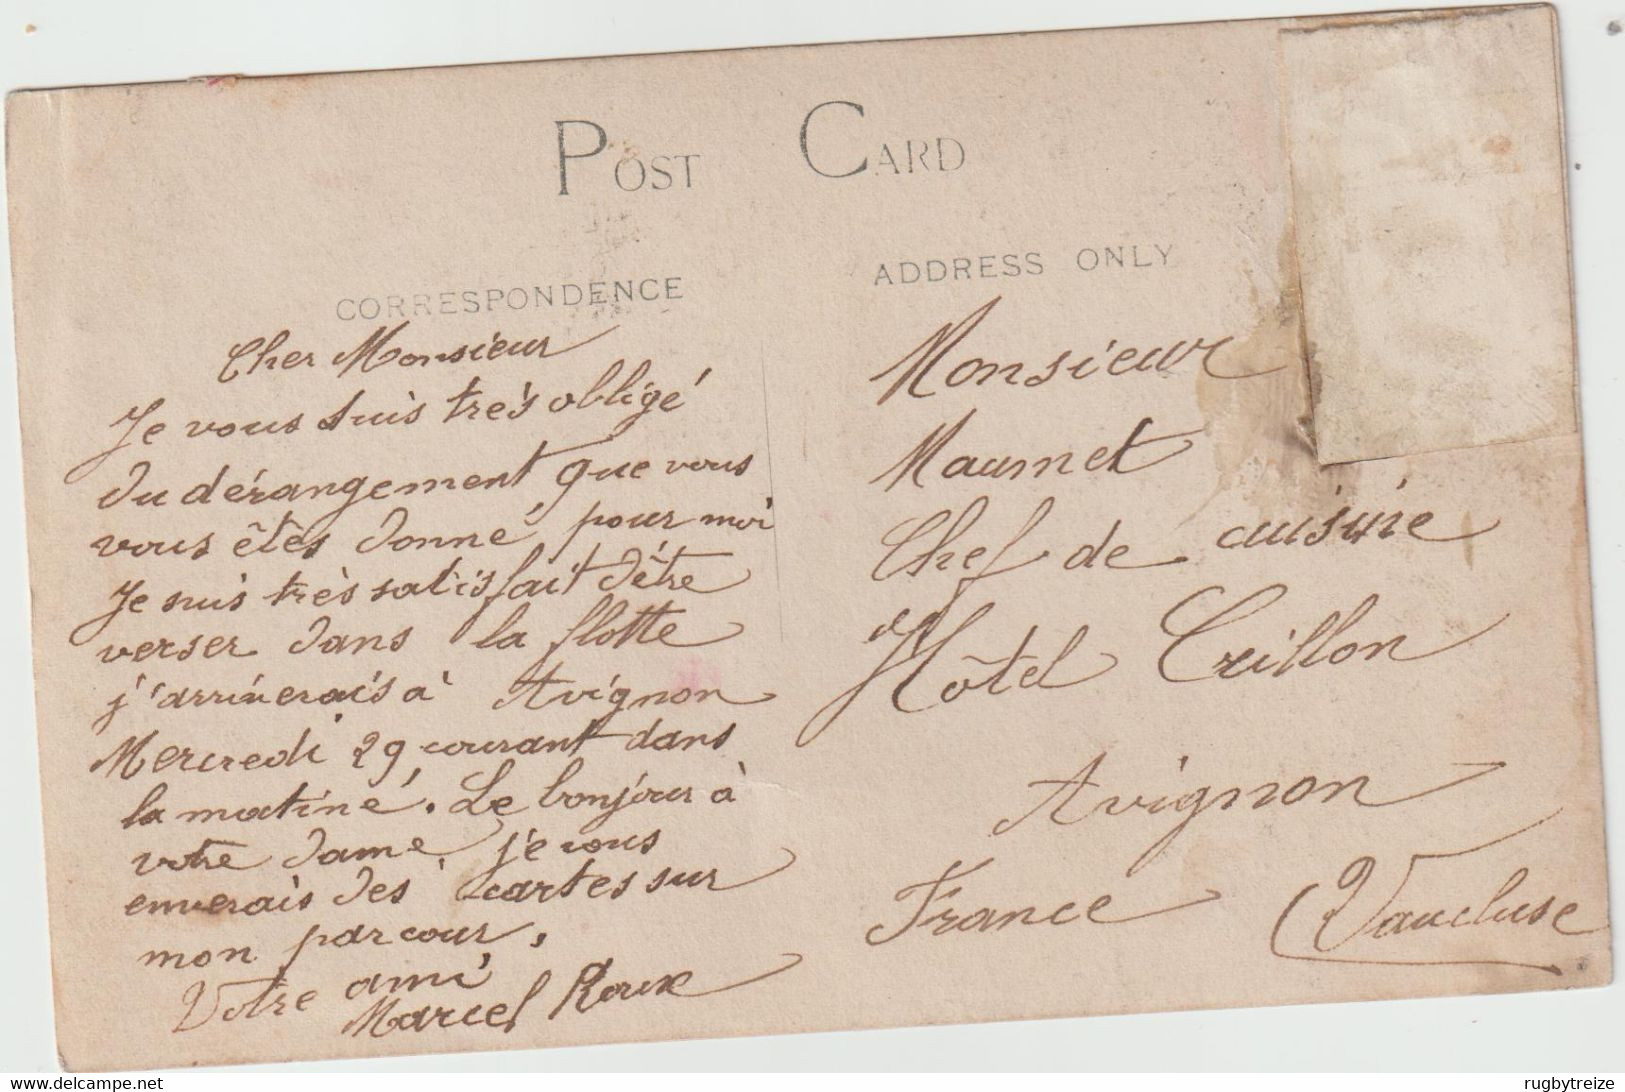 POST CARD
CORRESPONDENCE
ADDRESS ONLY
Cher Monsieur
Je vous suis très obligé
du dérangement que vous
vous êtes donné pour moi
Je suis très satisfait d'être
verser dans la flotte
j'arriverais à Avignon
Mercredi 29 courant dans
la matiné. Le bonjour à
votre dame, je vous
enverais des cartes sur
mon parcour.
Votre ami
Marcel Roux
Monsieur
Maumet
Chef de cuisine
Hôtel Crillon
Avignon
France (Vaucluse
www.delcampe.net
rugbytreize